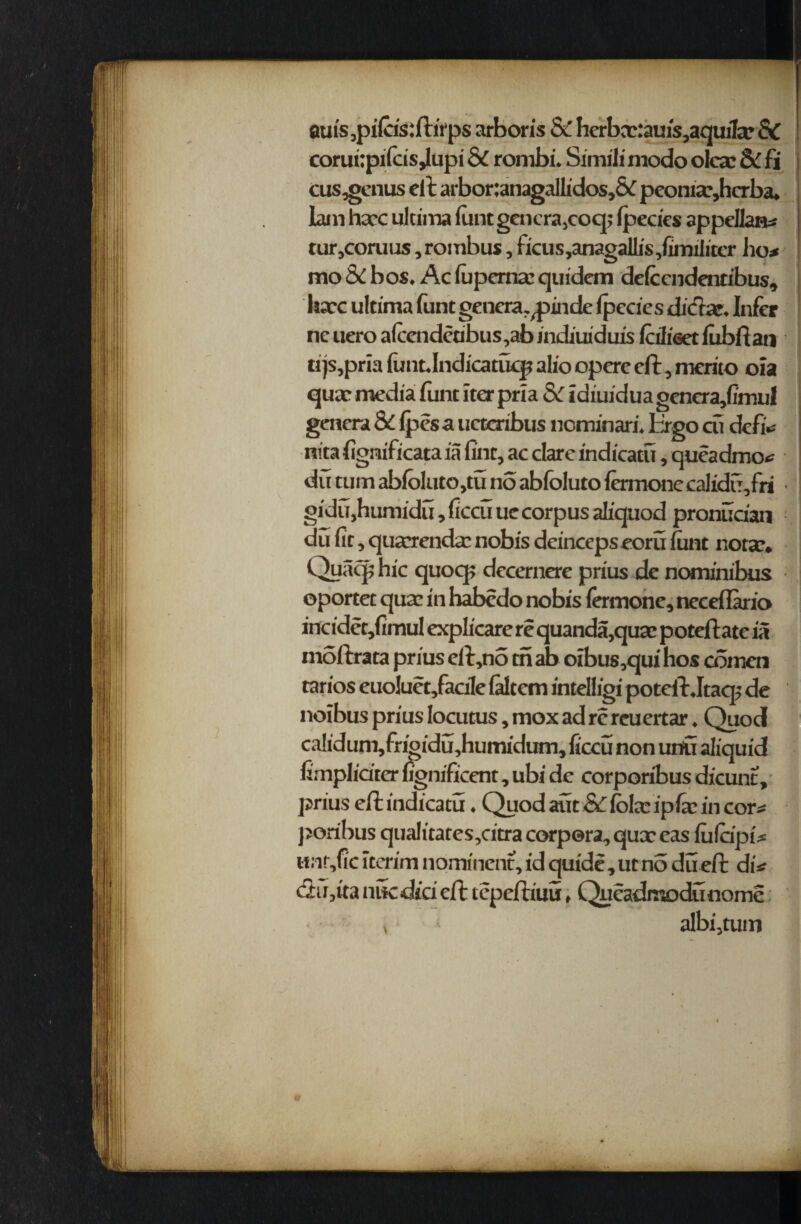 auis,piſcis:ſtirps arboris & herbæ:auis,aquilæ &
corui:piſcis,lupi & rombi. Simili modo oleæ & fi
cus,genus eſt arbor:anagallidos,& peoniæ,herba.
Iam hæc ultima ſunt genera,coq; ſpecies appellan⸗
tur,coruus, rombus, ficus,anagallis,ſimiliter ho⸗
mo & bos. Ac ſupernæ quidem deſcendentibus,
hæc ultima ſunt genera, ꝓinde ſpecies dictæ. Infer
ne uero aſcendẽtibus,ab indiuiduis ſcilicet ſubſtan
tijs,pría ſunt.Indicatũq; alio opere eſt, merito oĩa
quæ media ſunt ĩter pría & ĩdiuidua genera,ſimul
genera & ſpẽs a ueteribus nominari. Ergo cũ defi⸗
nita ſignificata iã ſint, ac clare indicatũ, quẽadmo⸗
dũ tum abſoluto,tũ nõ abſoluto ſermone calidũ,fri
gidũ,humidũ, ſiccũ ue corpus aliquod pronũcian
dũ ſit, quærendæ nobis deinceps eorũ ſunt notæ.
Quãq; hic quoq; decernere prius de nominibus
oportet quæ in habẽdo nobis ſermone, neceſſario
incidẽt,ſimul explicare rẽ quandã,quæ poteſtate iã
mõſtrata prius eſt,nõ tñ ab oĩbus,qui hos cõmen
tarios euoluẽt,facile ſaltem intelligi poteſt.Itaq; de
noĩbus prius locutus, mox ad rẽ reuertar. Quod
calidum,frigidũ,humidum, ſiccũ non unũ aliquid
ſimpliciter ſignificent, ubi de corporibus dicunt̃,
prius eſt indicatũ. Quod aũt & ſolæ ipſæ in cor⸗
poribus qualitates,citra corpora, quæ eas ſuſcipi⸗
unt,ſic ĩterim nominent̃, id quidẽ, ut nõ dũ eſt di⸗
ctũ,ita nũc dici eſt tẽpeſtiuũ. Quẽadmodũ nomẽ
albi,tum